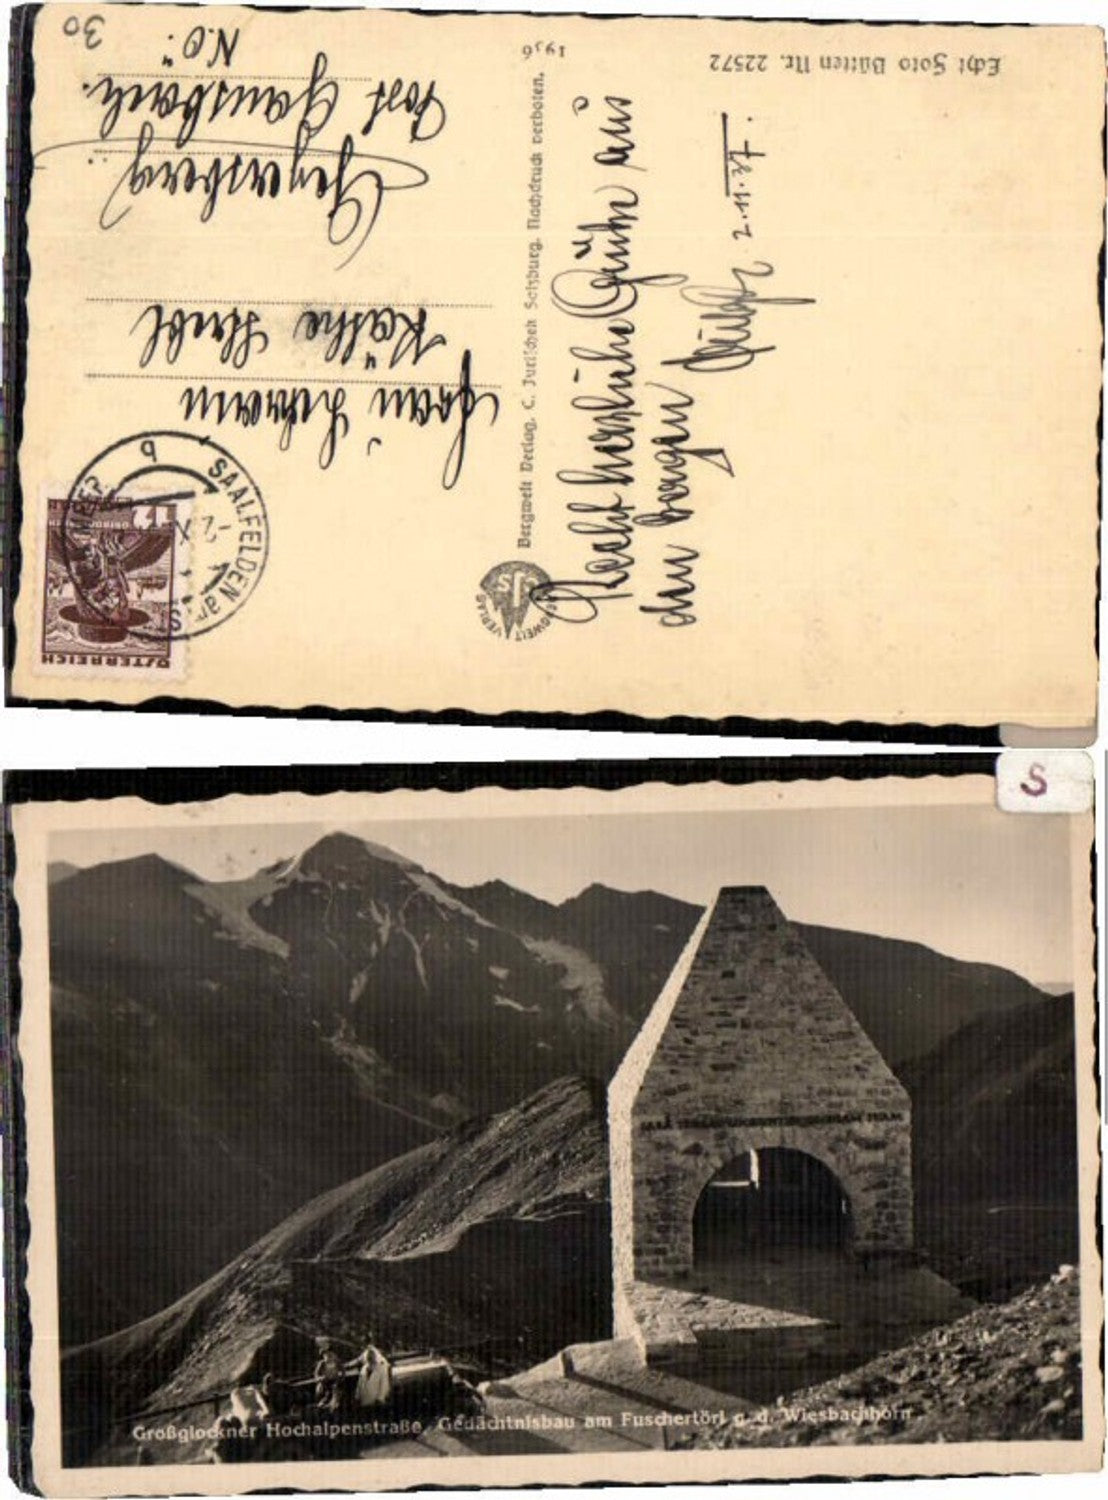 Echt Foto Bütten Nr. 22572
1936
Bergwelt Verlag, C. Jurischek Salzburg. Nachdruck verboten.
BERGWELT
VERLAG
30
ÖSTERREICH
12
SAALFELDEN am
MEER
b
-2. X
Frau
Käthe Strebl
Geyersberg
Post Gansbach.
N.Ö.
Recht herzliche Grüße aus
den Bergen
2.11.37.
S
Großglockner Hochalpenstraße, Gedächtnisbau am Fuschertörl g. d. Wiesbachhorn